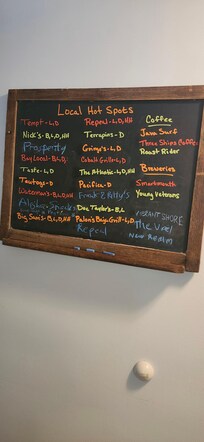 Local Hot Spots
Tempt - L, D
Nick's - B, L, D, HH
Prosperity
Bay Local - B, L
Taste - L, D
Tautogs - D
Waterman's - B, L, D, HH
Big Sam's - B, L, D, HH
Repeal - L, D, HH
Terrapins - D
Gringo's - L, D
Cobalt Grille - L, D
The Atlantic - L, D, HH
Pacifica - D
Doc Taylor's - B, L
Baja Grill - L, D
Repeal
Coffee
Java Surf
Three Ships Coffee
Roast Rider
Breweries
Smartmouth
Young Veterans
VIBRANT SHORE
The Vibe
New Realm